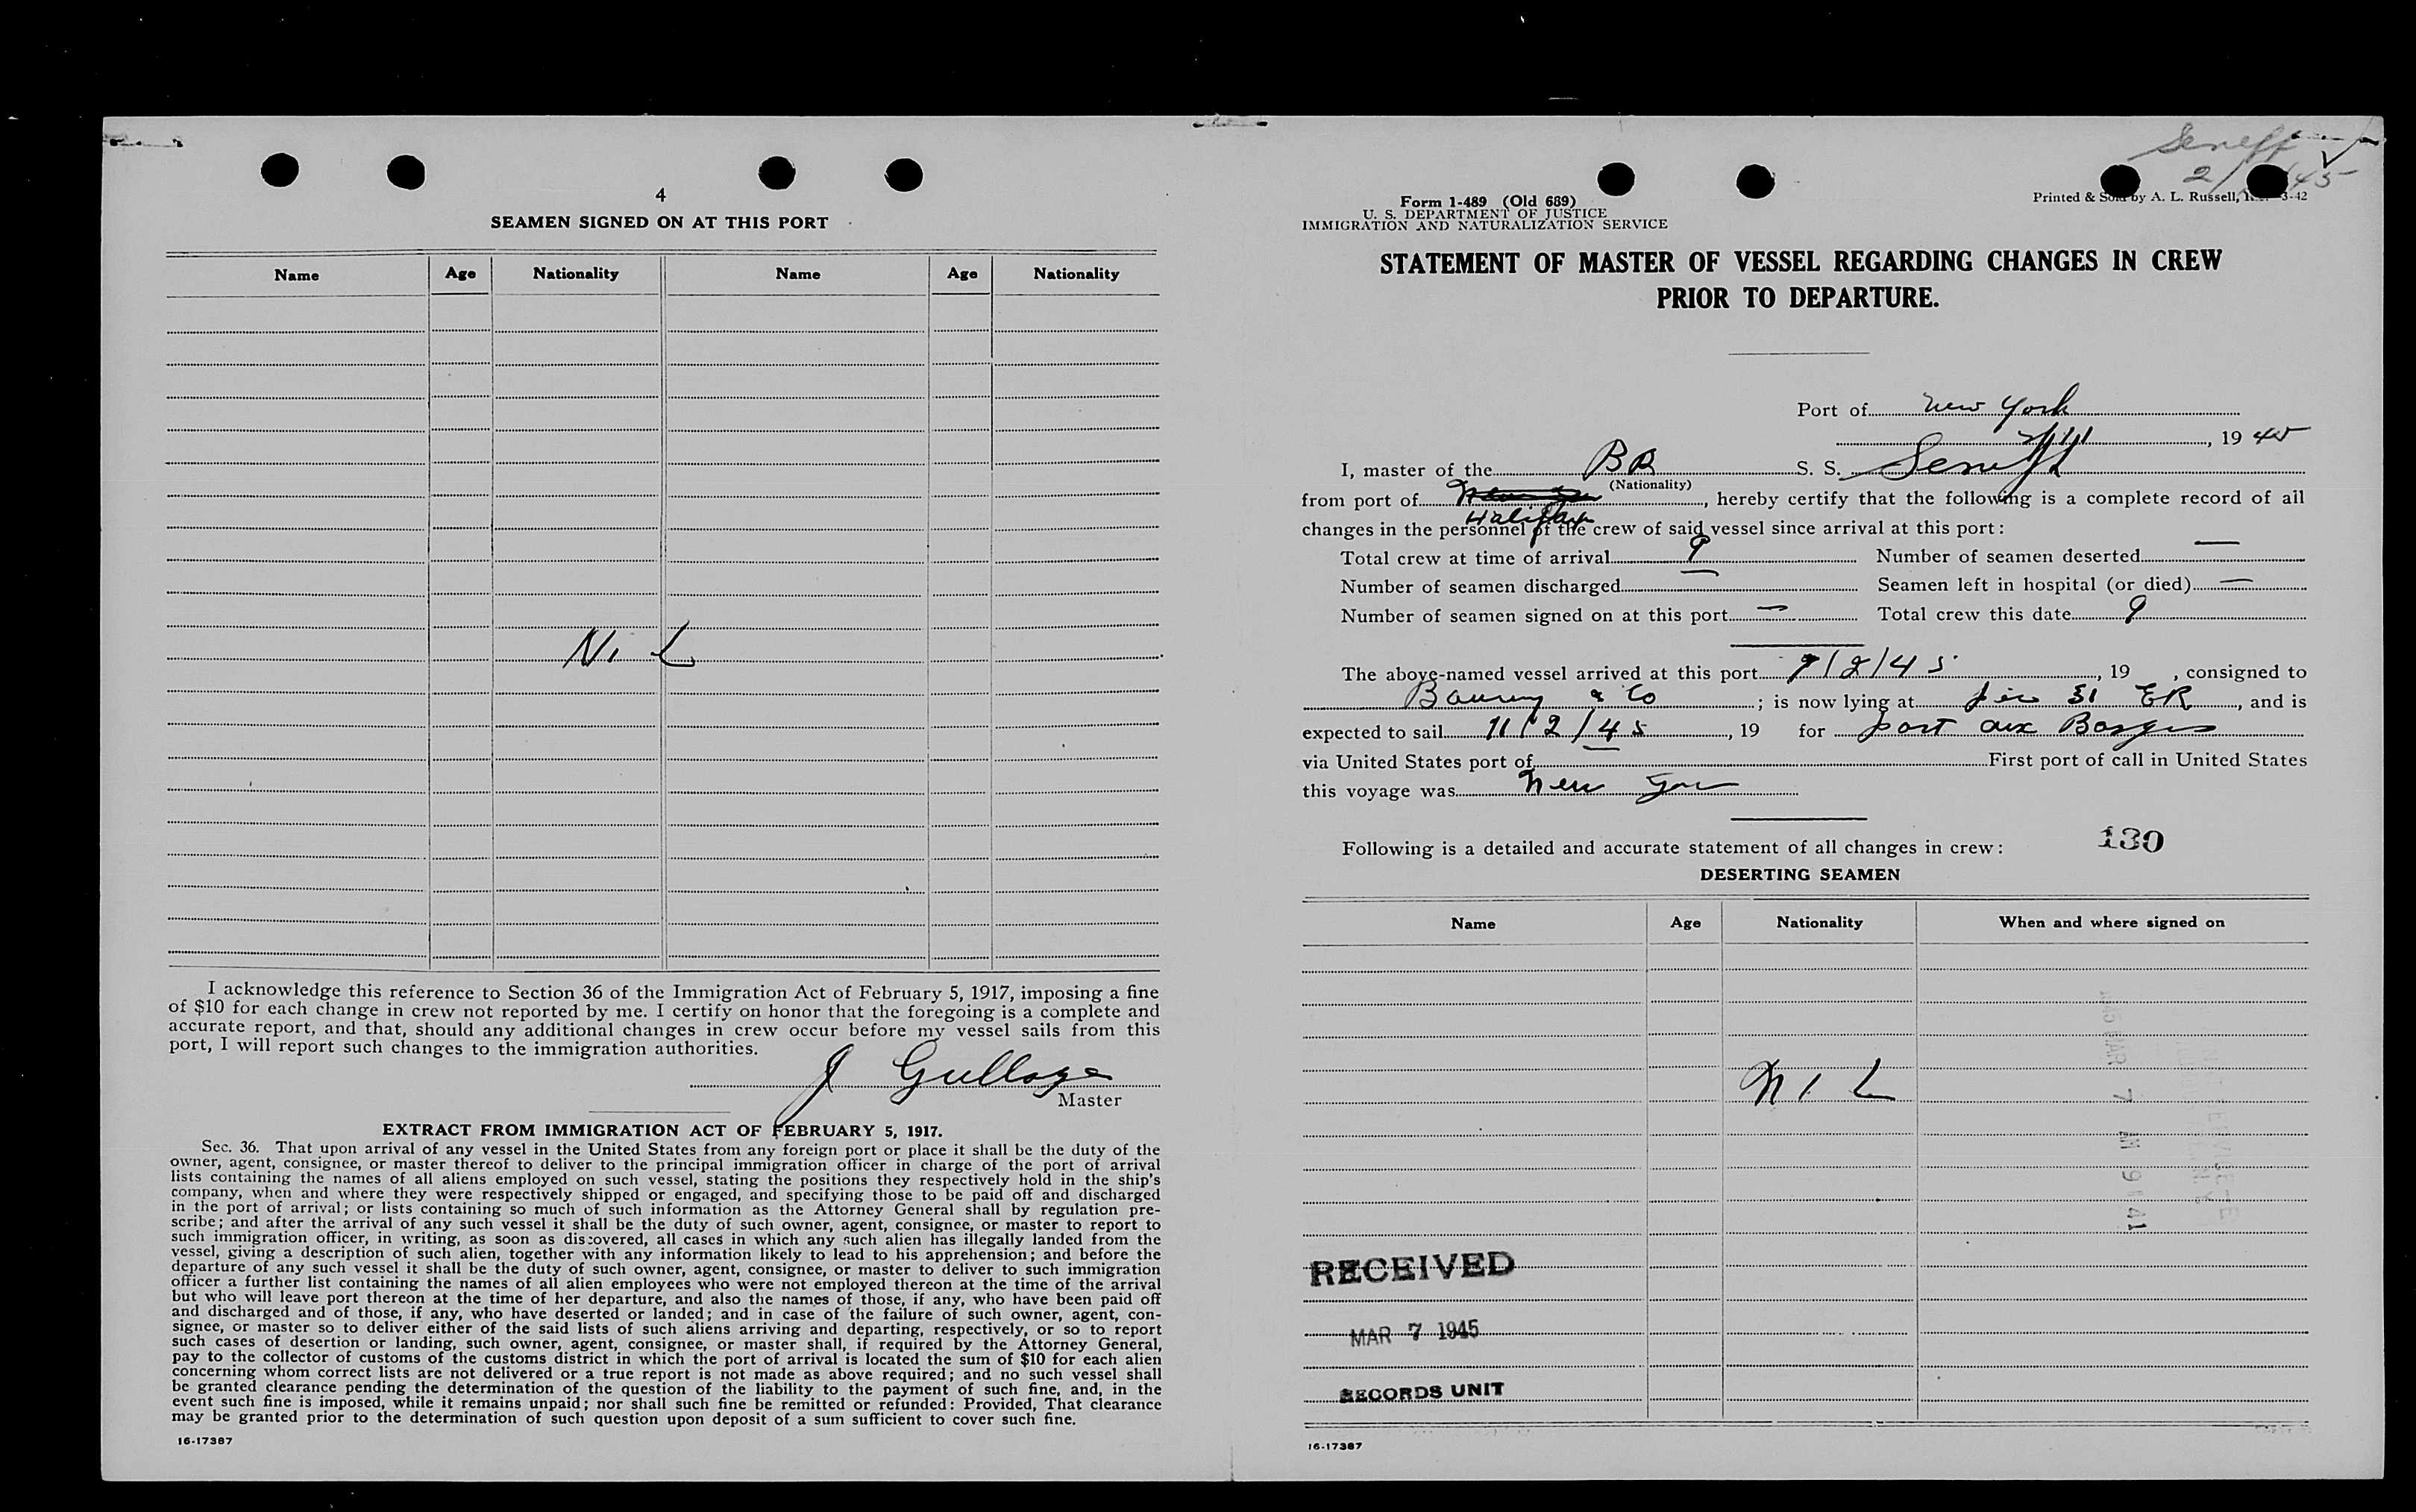 4
SEAMEN SIGNED ON AT THIS PORT
Name Age Nationality Name Age Nationality
Ni L
I acknowledge this reference to Section 36 of the Immigration Act of February 5, 1917, imposing a fine
of $10 for each change in crew not reported by me. I certify on honor that the foregoing is a complete and
accurate report, and that, should any additional changes in crew occur before my vessel sails from this
port, I will report such changes to the immigration authorities.
J Gullage
Master
EXTRACT FROM IMMIGRATION ACT OF FEBRUARY 5, 1917.
Sec. 36. That upon arrival of any vessel in the United States from any foreign port or place it shall be the duty of the
owner, agent, consignee, or master thereof to deliver to the principal immigration officer in charge of the port of arrival
lists containing the names of all aliens employed on such vessel, stating the positions they respectively hold in the ship's
company, when and where they were respectively shipped or engaged, and specifying those to be paid off and discharged
in the port of arrival; or lists containing so much of such information as the Attorney General shall by regulation pre-
scribe; and after the arrival of any such vessel it shall be the duty of such owner, agent, consignee, or master to report to
such immigration officer, in writing, as soon as discovered, all cases in which any such alien has illegally landed from the
vessel, giving a description of such alien, together with any information likely to lead to his apprehension; and before the
departure of any such vessel it shall be the duty of such owner, agent, consignee, or master to deliver to such immigration
officer a further list containing the names of all alien employees who were not employed thereon at the time of the arrival
but who will leave port thereon at the time of her departure, and also the names of those, if any, who have been paid off
and discharged and of those, if any, who have deserted or landed; and in case of the failure of such owner, agent, con-
signee, or master so to deliver either of the said lists of such aliens arriving and departing, respectively, or so to report
such cases of desertion or landing, such owner, agent, consignee, or master shall, if required by the Attorney General,
pay to the collector of customs of the customs district in which the port of arrival is located the sum of $10 for each alien
concerning whom correct lists are not delivered or a true report is not made as above required; and no such vessel shall
be granted clearance pending the determination of the question of the liability to the payment of such fine, and, in the
event such fine is imposed, while it remains unpaid; nor shall such fine be remitted or refunded: Provided, That clearance
may be granted prior to the determination of such question upon deposit of a sum sufficient to cover such fine.
16-17387
Seneff
2/ 45
Form 1-489 (Old 689)
U. S. DEPARTMENT OF JUSTICE
IMMIGRATION AND NATURALIZATION SERVICE
Printed & Sold by A. L. Russell, 3-42
STATEMENT OF MASTER OF VESSEL REGARDING CHANGES IN CREW
PRIOR TO DEPARTURE.
Port of New York
, 19 45
I, master of the BR S. S. Seneff
(Nationality)
from port of , hereby certify that the following is a complete record of all
Halifax
changes in the personnel of the crew of said vessel since arrival at this port:
Total crew at time of arrival 9 Number of seamen deserted —
Number of seamen discharged — Seamen left in hospital (or died) —
Number of seamen signed on at this port — Total crew this date 9
The above-named vessel arrived at this port 9/2/45 , 19 , consigned to
& Co ; is now lying at pier 31 ER , and is
expected to sail 11/2/45 , 19 for port aux Basques
via United States port of — First port of call in United States
this voyage was New
Following is a detailed and accurate statement of all changes in crew: 130
DESERTING SEAMEN
Name Age Nationality When and where signed on
N i L
MAR 7 AM 9 41
RECEIVED
MAR 7 1945
RECORDS UNIT
16-17387